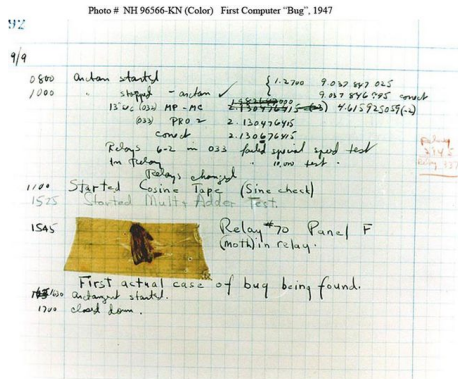 Photo # NH 96566-KN (Color) First Computer "Bug", 1947
92
9/9
0800 antan started { 1.2700 9.037 847 025
1000 " stopped - antan ✓ 9.037 846 995 conect
13" uc (032) MP-MC 2.130476415 4.615925059(-2)
(033) PRO 2 2.130476415
conect 2.130676415
Relays 6-2 in 033 failed special speed test
in relay " 10,000 test.
Relays changed
Relay
1100 Started Cosine Tape (Sine check)
1525 Started Mult+Adder Test.
1545 Relay #70 Panel F
(moth) in relay.
First actual case of bug being found.
antangent started.
1700 closed down.